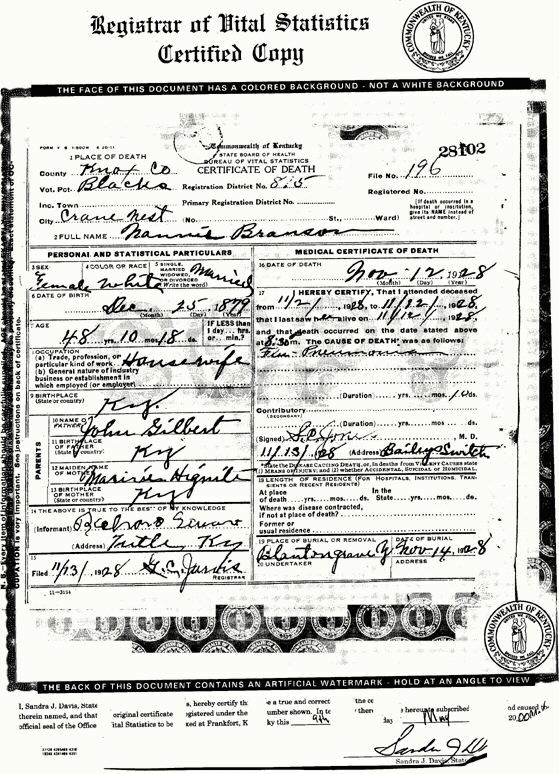 Registrar of Vital Statistics
Certified Copy
COMMONWEALTH OF KENTUCKY
THE FACE OF THIS DOCUMENT HAS A COLORED BACKGROUND - NOT A WHITE BACKGROUND
Commonwealth of Kentucky
STATE BOARD OF HEALTH
BUREAU OF VITAL STATISTICS
CERTIFICATE OF DEATH
28102
File No. 196
1 PLACE OF DEATH
County Knox Co
Vot. Pct. Blacks Registration District No. 815 Registered No.
Inc. Town Primary Registration District No.
[If death occurred in a hospital or institution, give its NAME instead of street and number.]
City Crane Nest (No. St., Ward)
2 FULL NAME Nannie Branson
PERSONAL AND STATISTICAL PARTICULARS
3 SEX Female
4 COLOR OR RACE White
5 SINGLE, MARRIED WIDOWED, OR DIVORCED (Write the word) Married
6 DATE OF BIRTH Dec 25 1879
(Month) (Day) (Year)
7 AGE 48 yrs. 10 mos. 18 ds.
IF LESS than 1 day ... hrs. or ... min.?
8 OCCUPATION
(a) Trade, profession, or particular kind of work Housewife
(b) General nature of industry business or establishment in which employed (or employer)
9 BIRTHPLACE (State or country) Ky.
PARENTS
10 NAME OF FATHER John Gilbert
11 BIRTHPLACE OF FATHER (State or country) Ky
12 MAIDEN NAME OF MOTHER Hignite
13 BIRTHPLACE OF MOTHER (State or country) Ky
14 THE ABOVE IS TRUE TO THE BEST OF MY KNOWLEDGE
(Informant)
(Address) Tuttle Ky
15 Filed 11/31, 1928 G. C. Jarvis
REGISTRAR
11-3184
MEDICAL CERTIFICATE OF DEATH
16 DATE OF DEATH Nov 12 1928
(Month) (Day) (Year)
17 I HEREBY CERTIFY, That I attended deceased
from 11/2/ 1928, to 11/12/, 1928,
that I last saw her alive on 11/12/, 1928,
and that death occurred on the date stated above
at 8:30 m. The CAUSE OF DEATH* was as follows:
Pneumonia
(Duration) yrs. mos. 10 ds.
Contributory
(SECONDARY)
(Duration) yrs. mos. ds.
(Signed) M. D.
11/13/, 1928 (Address) Bailey Switch
*State the DISEASE CAUSING DEATH, or, in deaths from VIOLENT CAUSES state
(1) MEANS OF INJURY; and (2) whether ACCIDENTAL, SUICIDAL or HOMICIDAL.
18 LENGTH OF RESIDENCE (FOR HOSPITALS, INSTITUTIONS, TRANSIENTS OR RECENT RESIDENTS)
At place of death yrs. mos. ds. In the State yrs. mos. ds.
Where was disease contracted, if not at place of death?
Former or usual residence
19 PLACE OF BURIAL OR REMOVAL DATE OF BURIAL
Nov 14, 1928
20 UNDERTAKER ADDRESS
COMMONWEALTH OF KENTUCKY
THE BACK OF THIS DOCUMENT CONTAINS AN ARTIFICIAL WATERMARK - HOLD AT AN ANGLE TO VIEW
I, Sandra J. Davis, State
therein named, and that
official seal of the Office
s, hereby certify th
original certificate
ital Statistics to be
egistered under the
xed at Frankfort, K
e a true and correct
umber shown. In te
ky this 9th
day May
e hereunto subscribed
nd caused
20 00
Sandra J. Davis
Sandra J. Davis, State